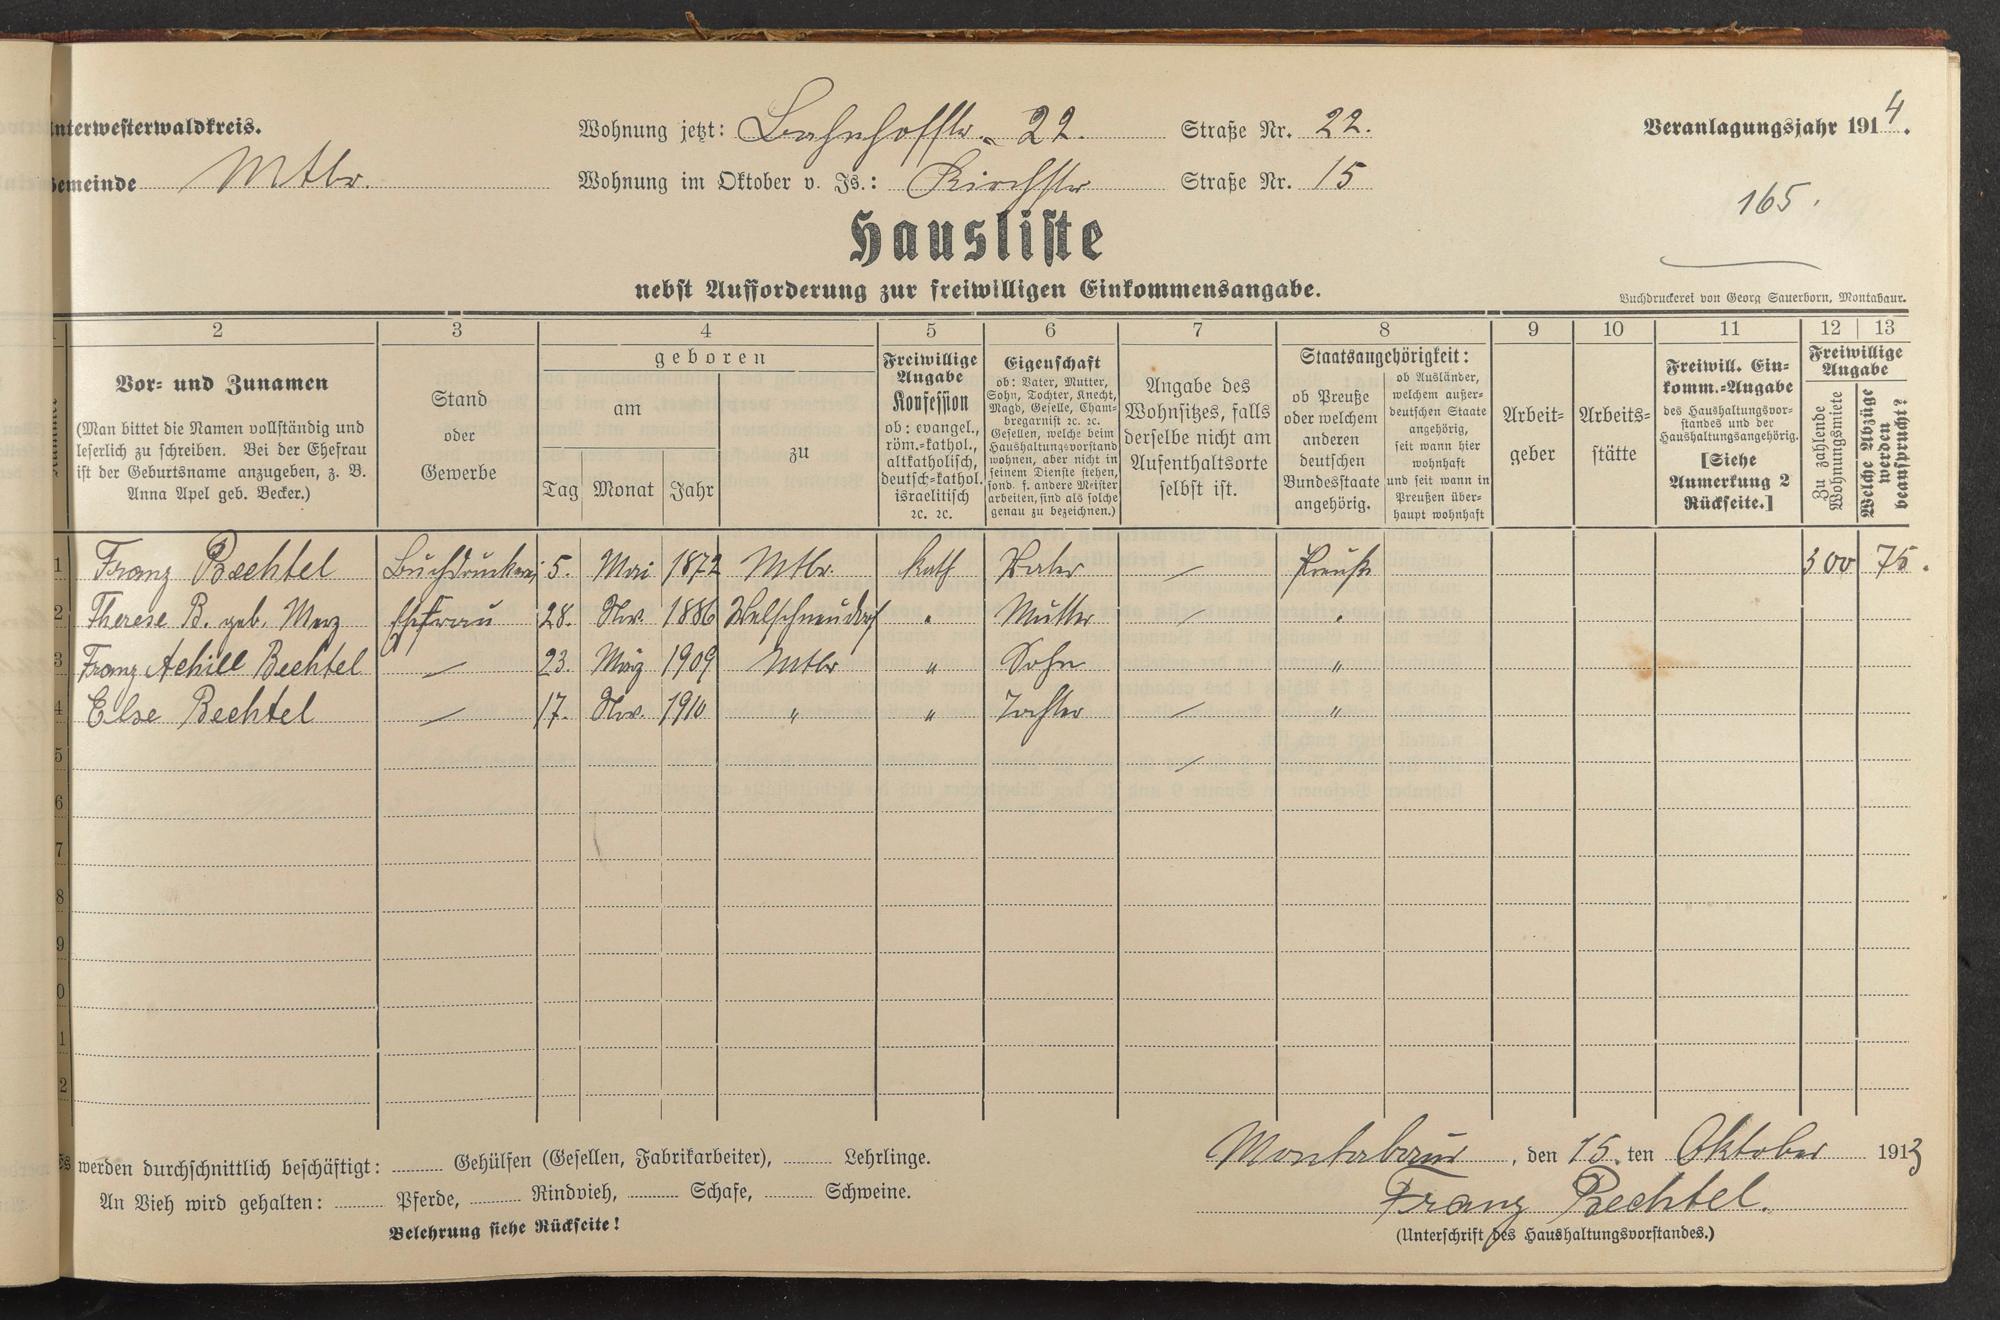 nterwesterwaldkreis.
Wohnung jetzt: Bahnhofstr. 22. Straße Nr. 22.
Veranlagungsjahr 1914.
emeinde Mtbr.
Wohnung im Oktober v. Js.: Kirchstr Straße Nr. 15
165.
Hausliste
nebst Aufforderung zur freiwilligen Einkommensangabe.
Buchdruckerei von Georg Sauerborn, Montabaur.
2 3 4 5 6 7 8 9 10 11 12 13
Vor- und Zunamen
(Man bittet die Namen vollständig und
leserlich zu schreiben. Bei der Ehefrau
ist der Geburtsname anzugeben, z. B.
Anna Apel geb. Becker.)
Stand
oder
Gewerbe
geboren
am
Tag Monat Jahr
zu
Freiwillige
Angabe
Konfession
ob: evangel.,
röm.-kathol.,
altkatholisch,
deutsch-kathol.
israelitisch
ꝛc. ꝛc.
Eigenschaft
ob: Vater, Mutter,
Sohn, Tochter, Knecht,
Magd, Geselle, Cham-
bregarnist ꝛc. ꝛc.
Gesellen, welche beim
Haushaltungsvorstand
wohnen, aber nicht in
seinem Dienste stehen,
sond. f. andere Meister
arbeiten, sind als solche
genau zu bezeichnen.)
Angabe des
Wohnsitzes, falls
derselbe nicht am
Aufenthaltsorte
selbst ist.
Staatsangehörigkeit:
ob Preuße
oder welchem
anderen
deutschen
Bundesstaate
angehörig.
ob Ausländer,
welchem außer-
deutschen Staate
angehörig,
seit wann hier
wohnhaft
und seit wann in
Preußen über-
haupt wohnhaft
Arbeit-
geber
Arbeits-
stätte
Freiwill. Ein-
komm.-Angabe
des Haushaltungsvor-
standes und der
Haushaltungsangehörig.
[Siehe
Anmerkung 2
Rückseite.]
Freiwillige
Angabe
Zu zahlende
Wohnungsmiete
Welche Abzüge
werden
beansprucht?
1 Franz Bechtel Buchdruckerei 5. Mai 1872 Mtbr. Kath Vater — Preuße 300 75.
2 Therese B. geb. Merz Ehefrau 28. Nov. 1886 Welschneudorf " Mutter — "
3 Franz Achill Bechtel — 23. März 1909 Mtbr " Sohn "
4 Else Bechtel — 17. Nov. 1910 " " Tochter — "
5 —
6
7
8
9
0
1
2
Es werden durchschnittlich beschäftigt: Gehülfen (Gesellen, Fabrikarbeiter), Lehrlinge.
An Vieh wird gehalten: Pferde, Rindvieh, Schafe, Schweine.
Belehrung siehe Rückseite!
Montabaur, den 15. ten Oktober 1913
Franz Bechtel.
(Unterschrift des Haushaltungsvorstandes.)